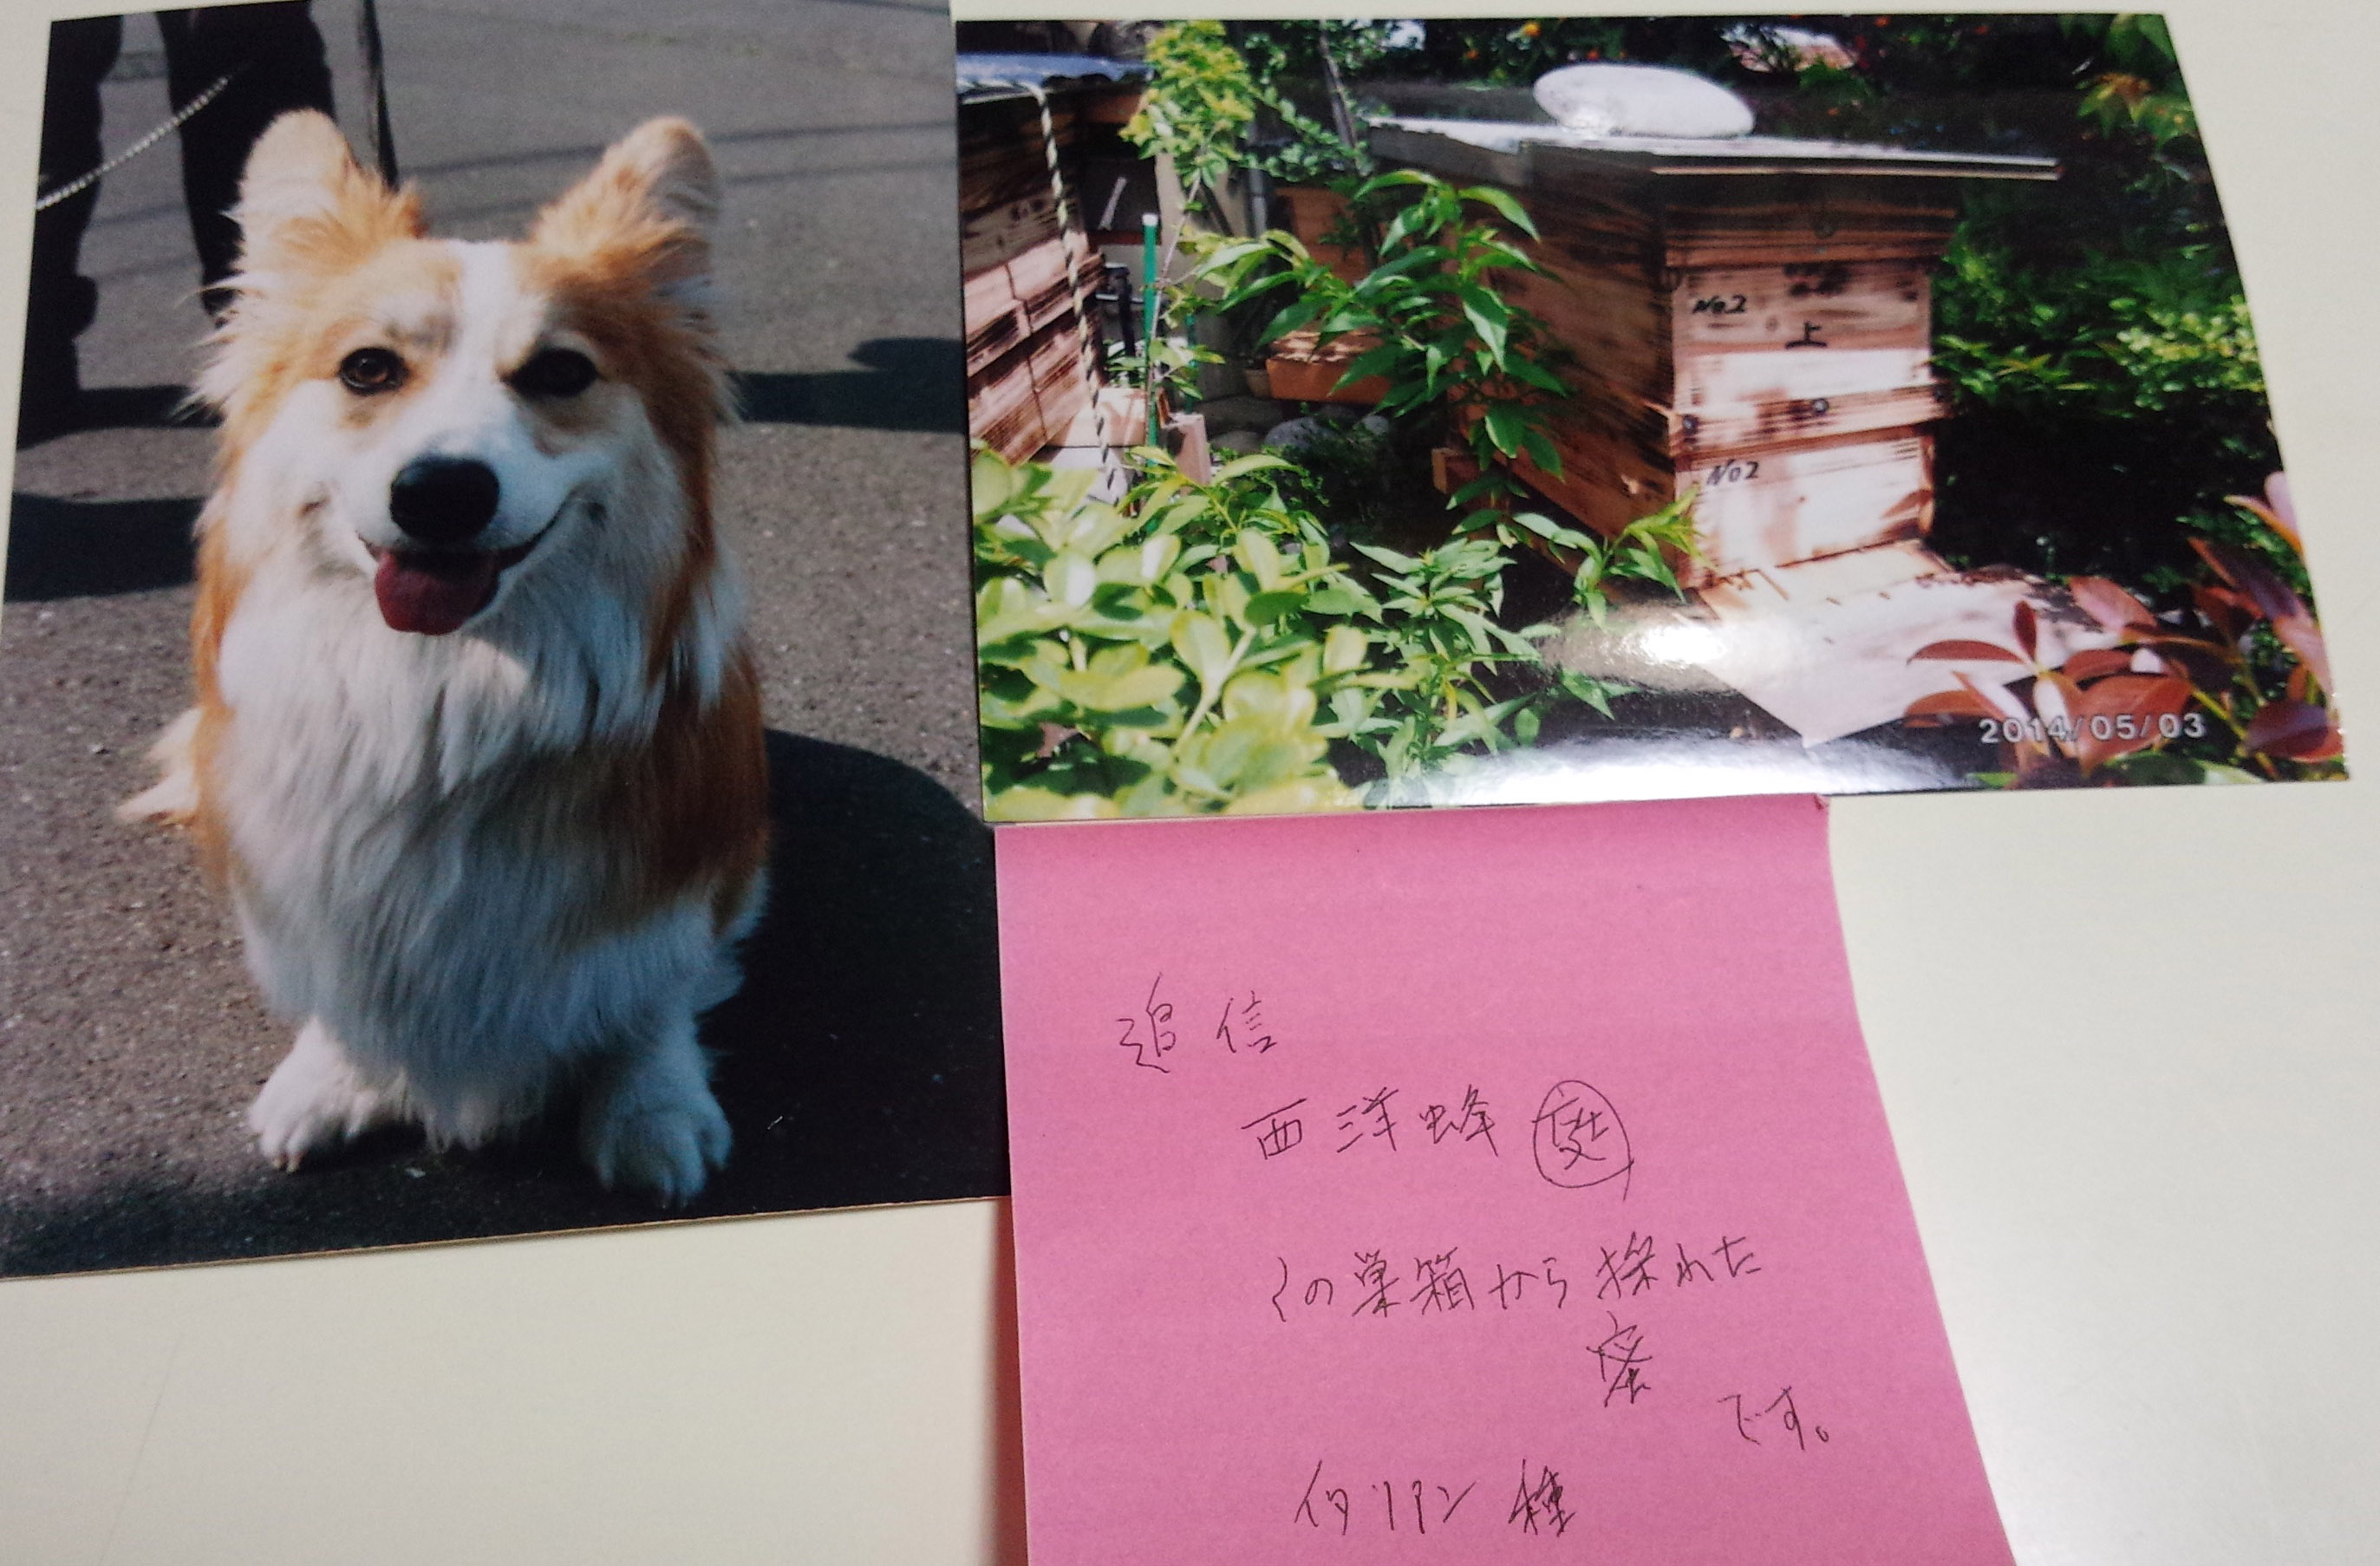 No2
上
No2
2014/05/03
追信
西洋蜂
の巣箱から採れた
蜜
です。
イタリアン種